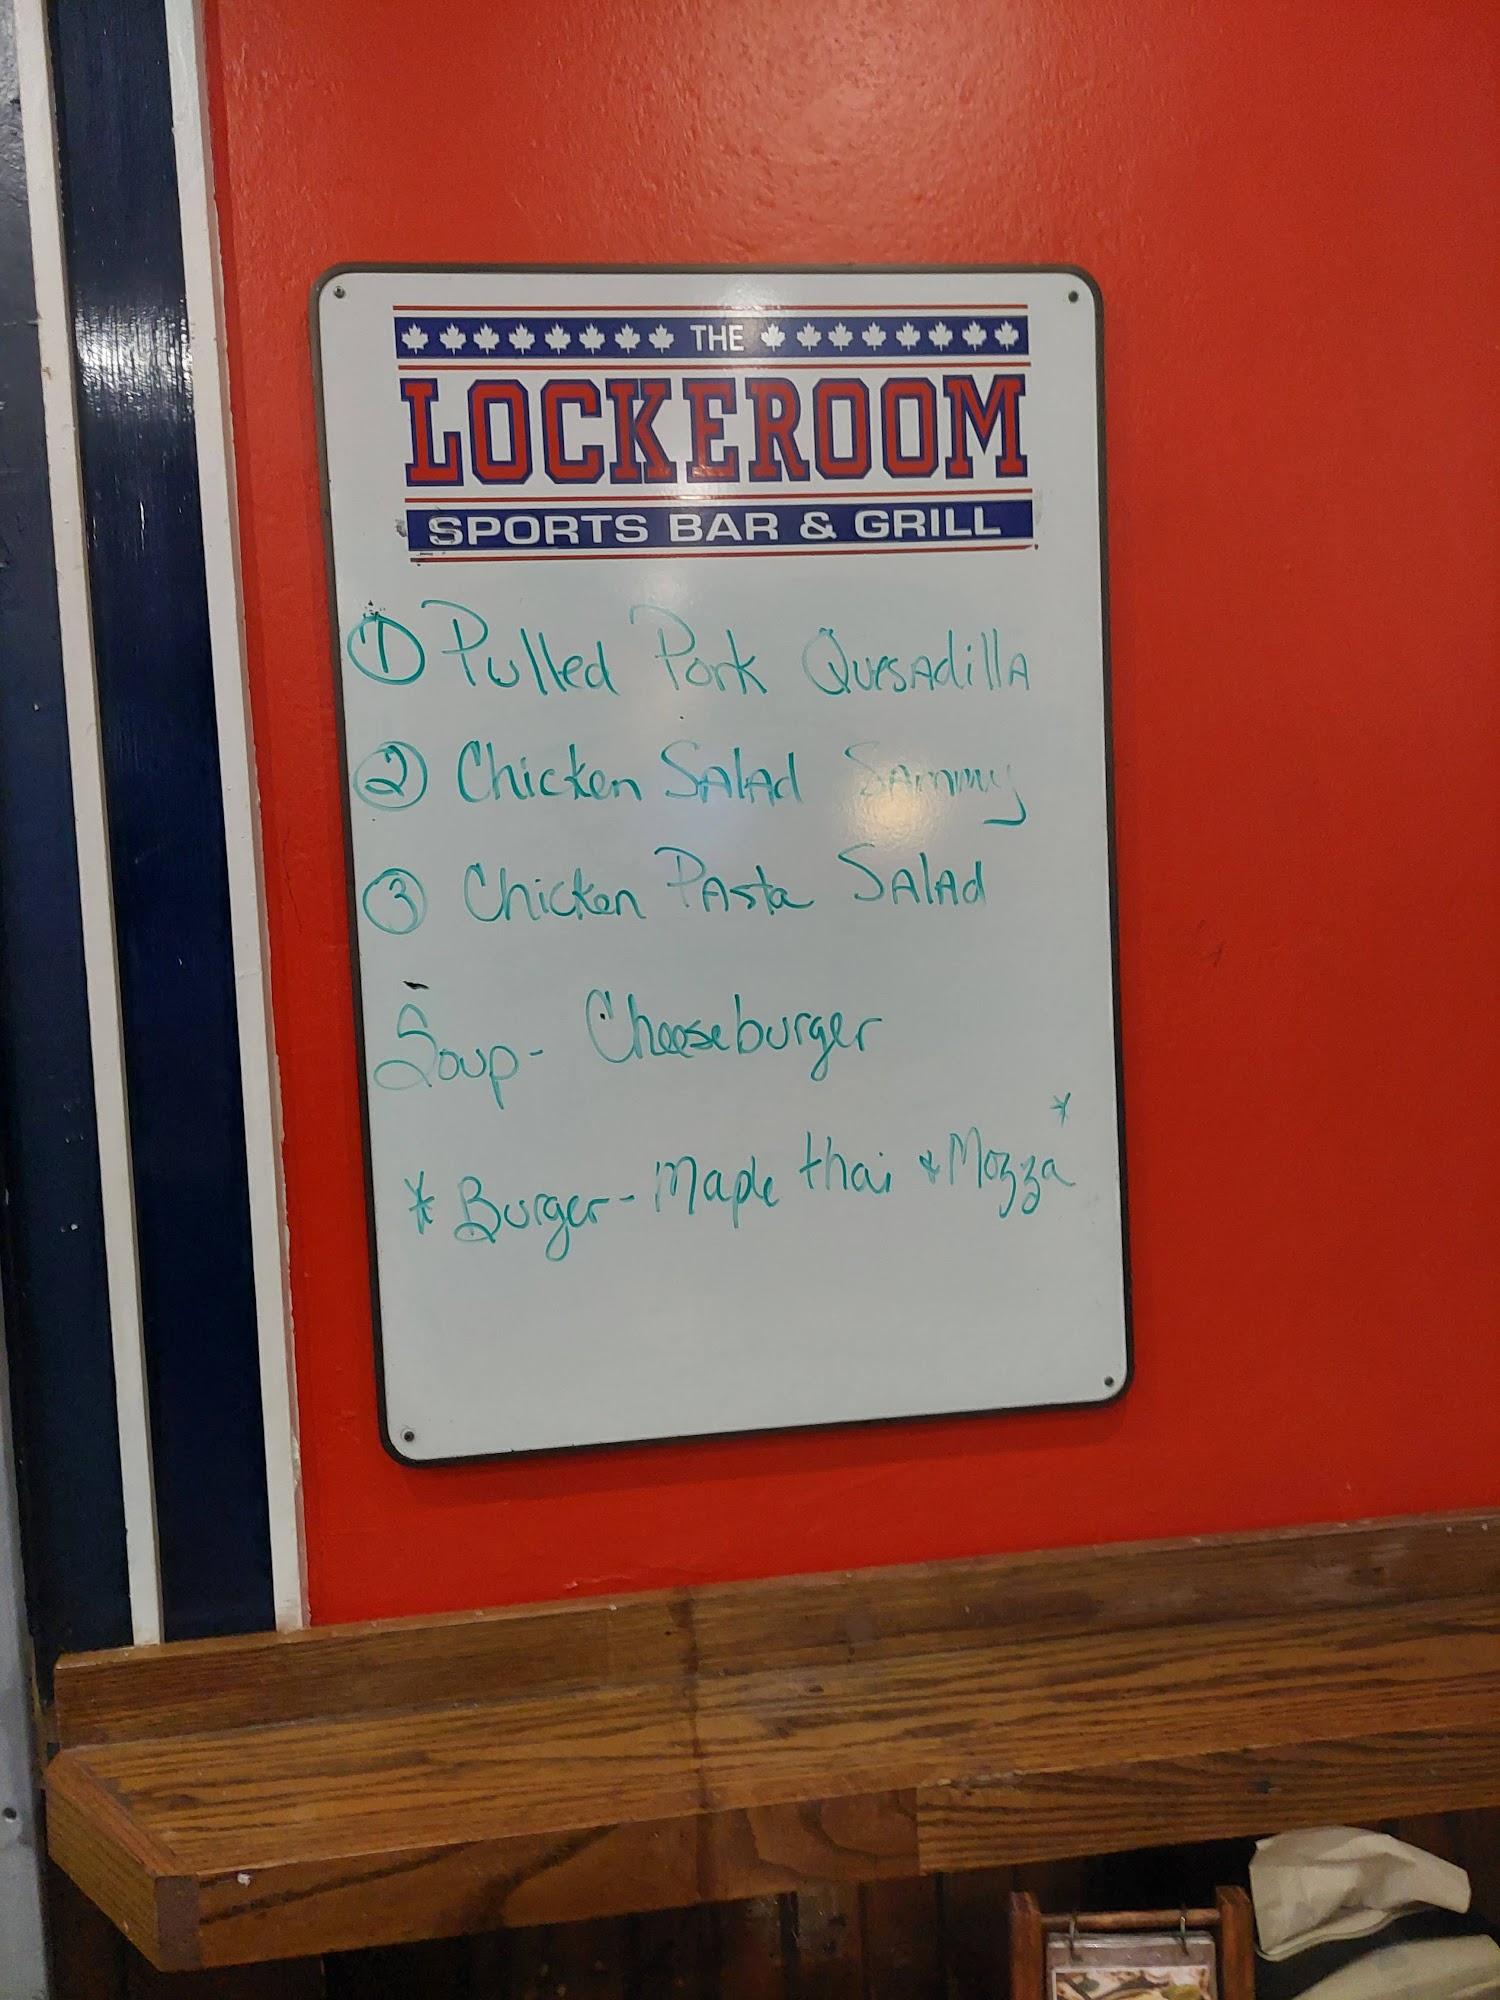 THE
LOCKEROOM
SPORTS BAR & GRILL
① Pulled Pork Quesadilla
② Chicken Salad Sammy
③ Chicken Pasta Salad
Soup - Cheeseburger
* Burger - Maple thai & Mozza *